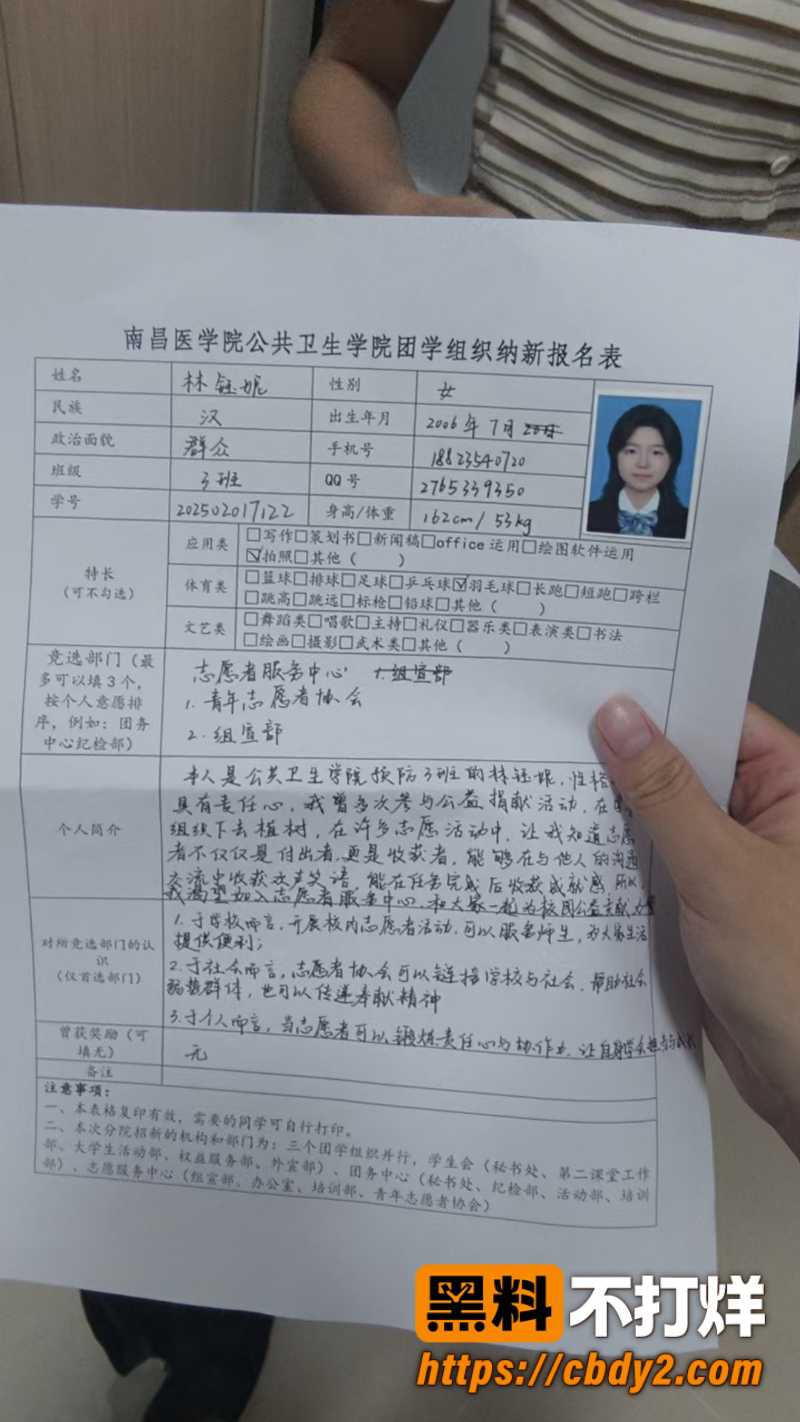 南昌医学院公共卫生学院团学组织纳新报名表
姓名 性别 女
民族 汉 出生年月
政治面貌 群众 手机号
班级 QQ号
学号 身高/体重
特长
（可不勾选）
应用类 □写作□策划书□新闻稿□office运用□绘图软件运用
☑拍照□其他（ ）
体育类 □篮球□排球□足球□乒乓球☑羽毛球□长跑□短跑□跨栏
□跳高□跳远□标枪□铅球□其他（ ）
文艺类 □舞蹈类□唱歌□主持□礼仪□器乐类□表演类□书法
□绘画□摄影□武术类□其他（ ）
竞选部门（最
多可以填3个，
按个人意愿排
序，例如：团务
中心纪检部）
志愿者服务中心
1. 青年志愿者协会
2. 组宣部
个人简介
具有责任心，我曾多次参与公益捐献活动，在
组织下去植树，在许多志愿活动中，让我知道志愿
者不仅仅是付出者，更是收获者，能够在与他人的沟通
交流中收获欢声笑语，能在任务完成后收获成就感，所以
我渴望加入志愿者服务中心，和大家一起为校园公益贡献力量
对所竞选部门的认
识
（仅首选部门）
1. 于学校而言，开展校内志愿者活动，可以服务师生，为大家生活
提供便利；
2. 于社会而言，志愿者协会可以链接学校与社会，帮助社会
弱势群体，也可以传递奉献精神
3. 于个人而言，当志愿者可以锻炼责任心与协作力，让自身学会
曾获奖励（可
填无）
无
备注
注意事项：
一、本表格复印有效，需要的同学可自行打印。
二、本次分院招新的机构和部门为：三个团学组织并行，学生会（秘书处、第二课堂工作
部、大学生活动部、权益服务部、外宣部）、团务中心（秘书处、纪检部、活动部、培训
部）、志愿服务中心（组宣部、办公室、培训部、青年志愿者协会）